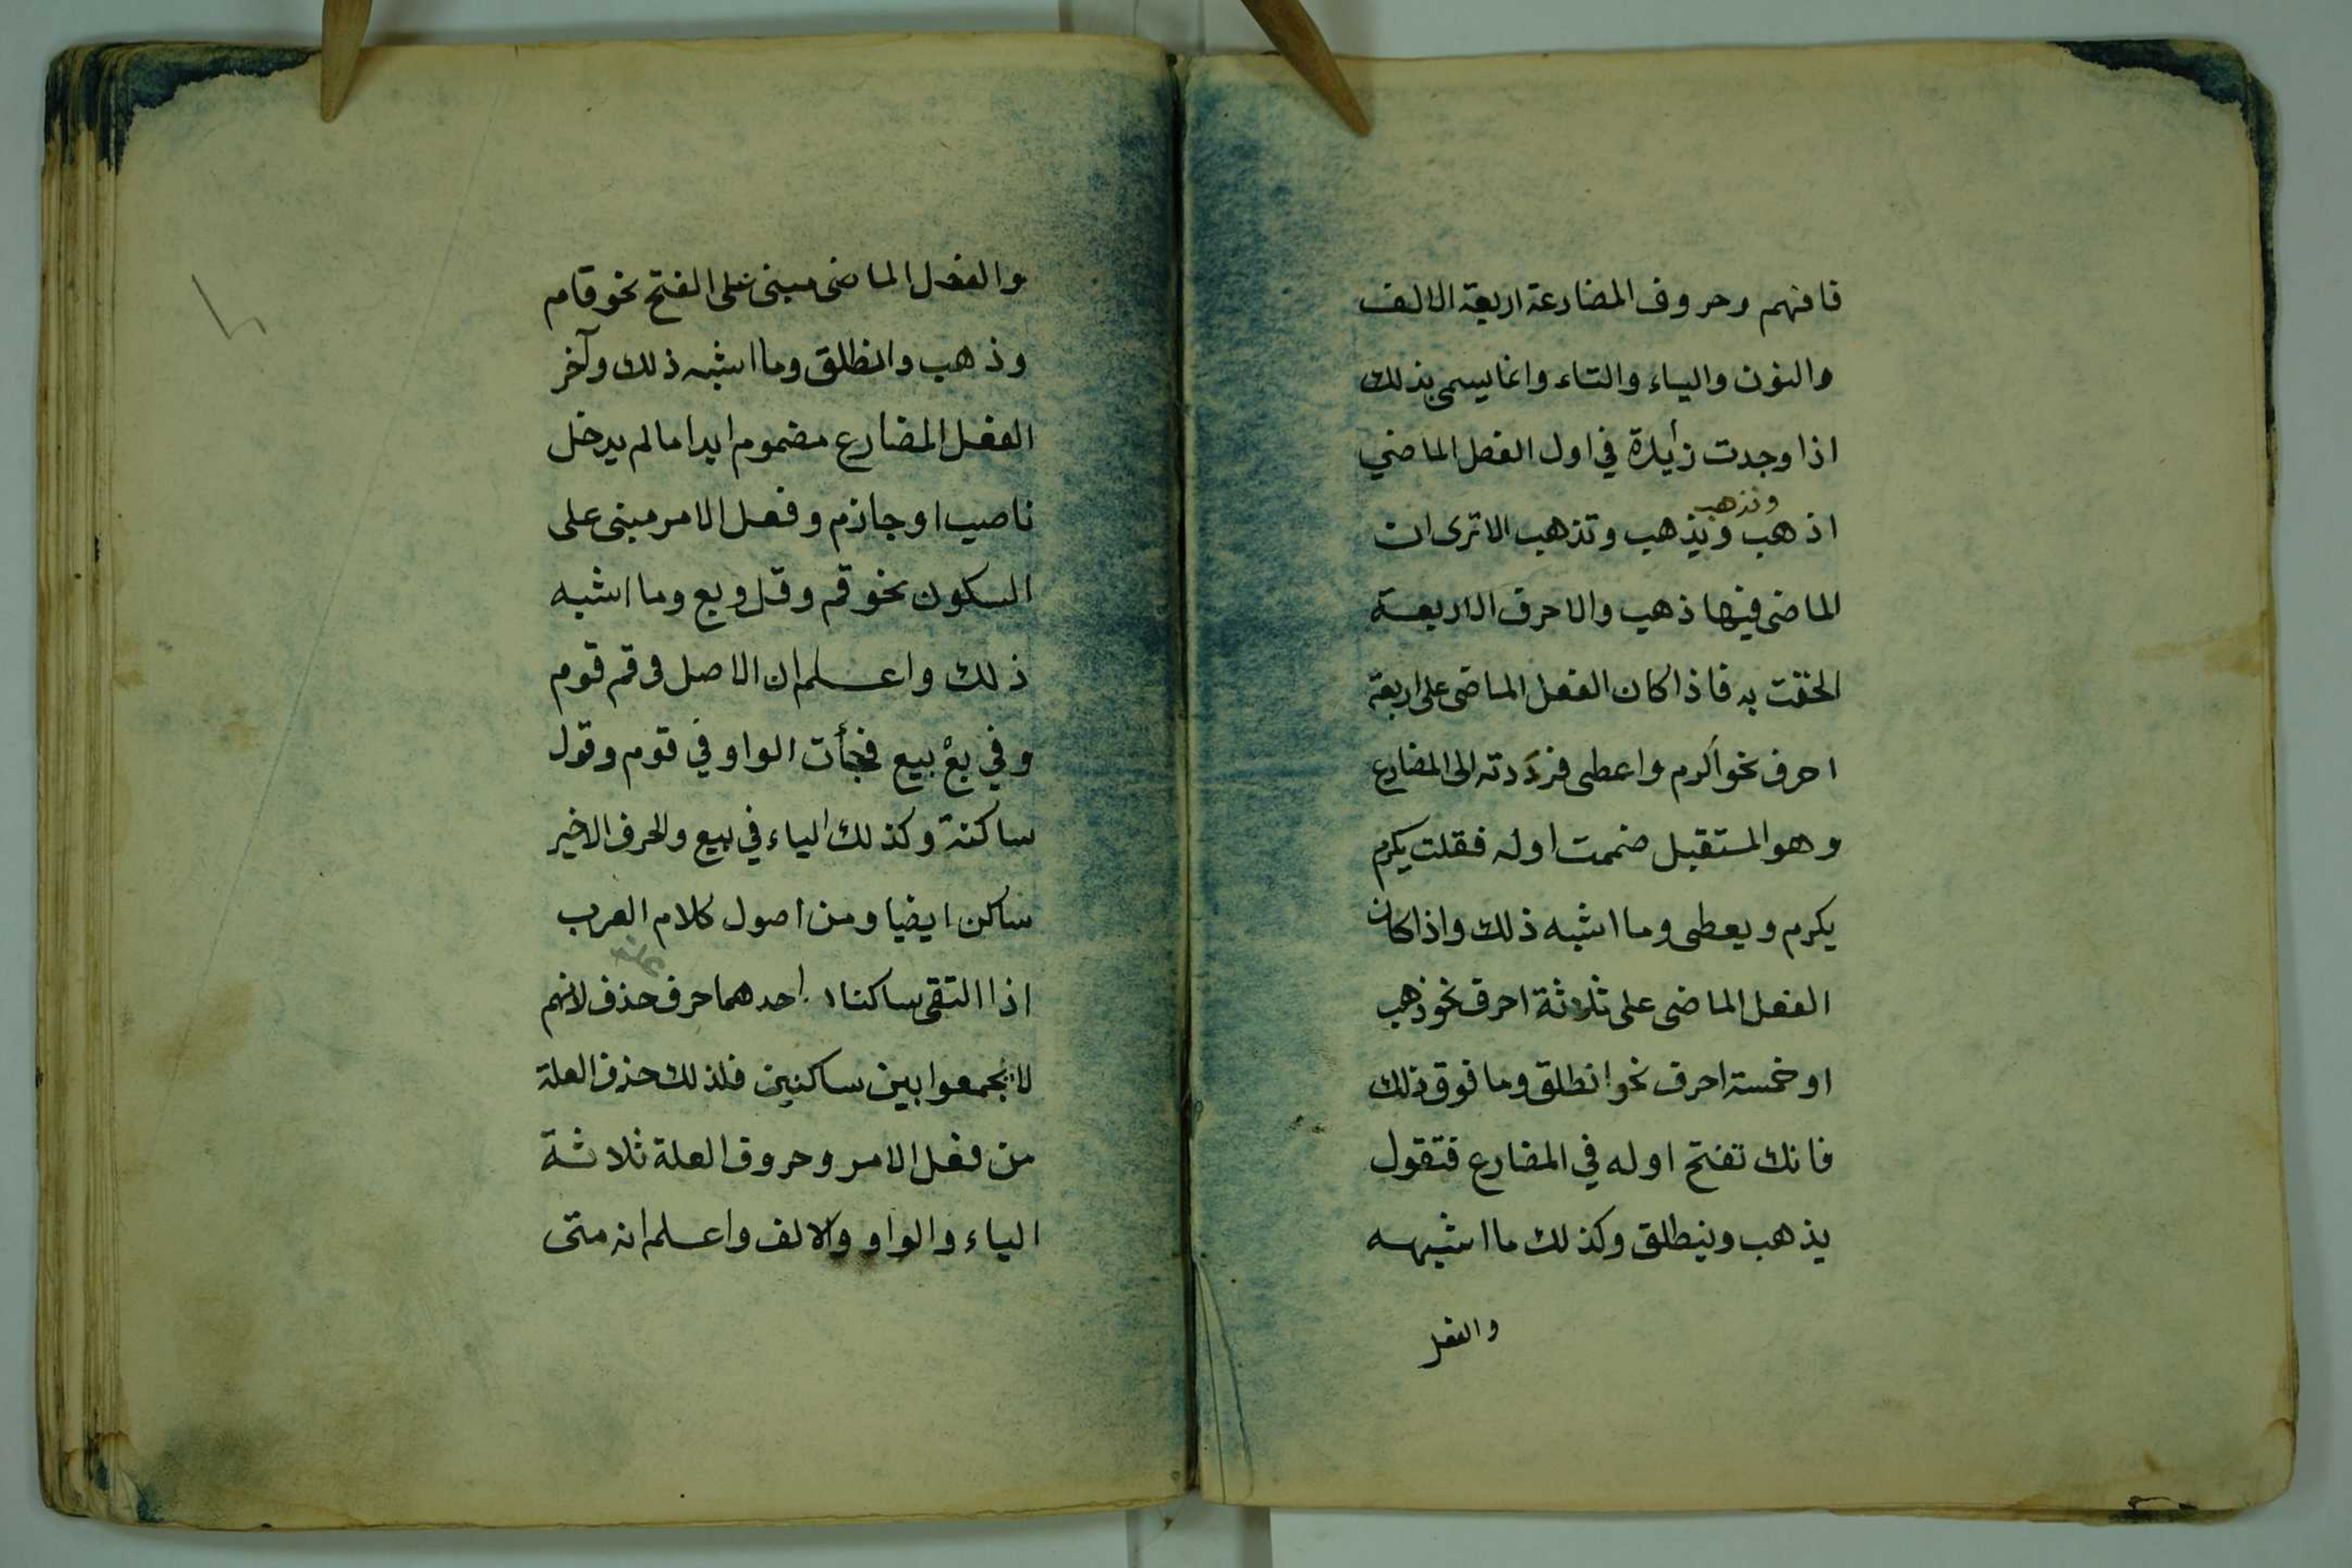 فافهم وحروف المضارعة اربعة الالف
والنون والياء والتاء وانما يسمى بذلك
اذا وجدت زأيدة في اول الفعل الماضي
ونذهب
اذهب ويذهب وتذهب الا ترى ان
الماضى فيها ذهب والاحرف الاربعة
الحقت به فاذا كان الفعل الماضى على اربعة
احرف نحو أكرم واعطى فرددته الى المضارع
وهو المستقبل ضممت اوله فقلت يكرم
يكرم ويعطى وما اشبه ذلك واذا كان
الفعل الماضى على ثلاثة احرف نحو ذهب
او خمسة احرف نحو انطلق وما فوق ذلك
فانك تفتح اوله في المضارع فتقول
يذهب وينطلق وكذلك ما اشبهه
والفعل
والفعل الماضى مبنى على الفتح نحو قام
وذهب وانطلق وما اشبه ذلك وآخر
الفعل المضارع مضموم ابدا ما لم يدخل
ناصب او جازم وفعل الامر مبنى على
السكون نحو قم وقل وبع وما اشبه
ذلك واعلم ان الاصل فى قم قوم
وفي بعْ بيع فجأت الواو في قوم وقول
ساكنة وكذلك الياء في بيع والحرف الاخير
ساكن ايضا ومن اصول كلام العرب
علة
اذا التقى ساكنان احدهما حرف حذف لانهم
لا يجمعوا بين ساكنين فلذلك حذف العلة
من فعل الامر وحروف العلة ثلاثة
الياء والواو والالف واعلم انه متى